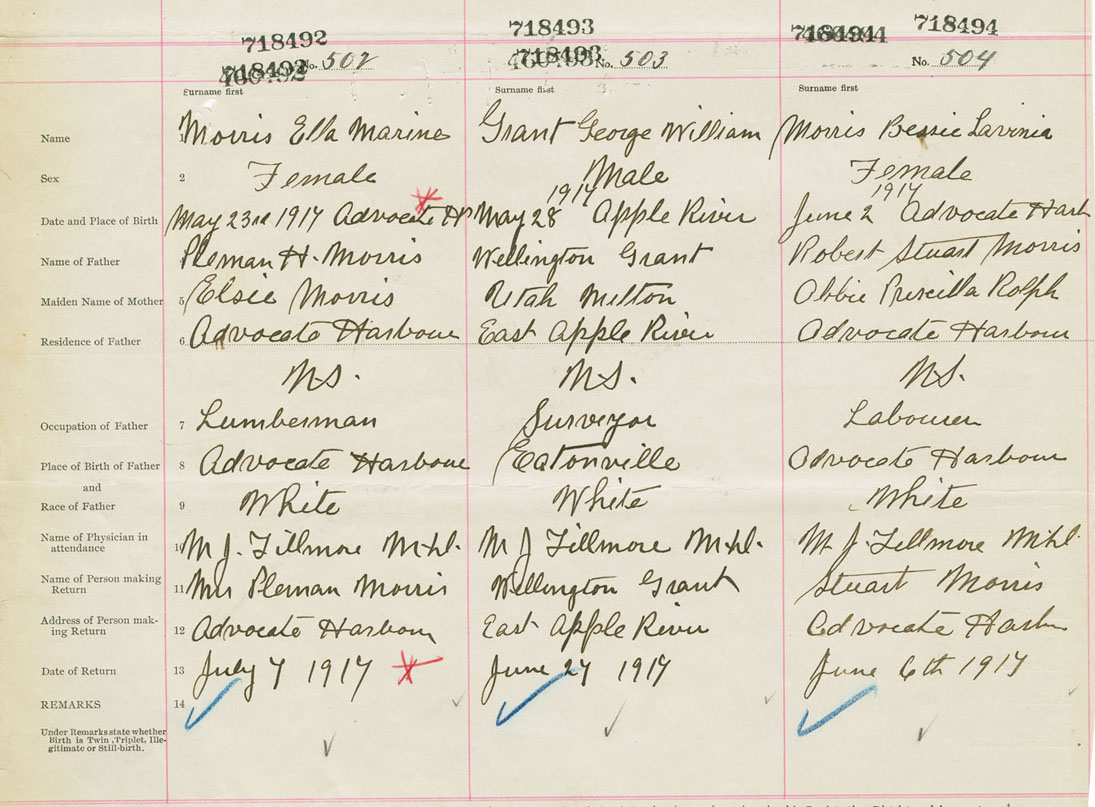 718492 718493 718494
718492 No. 502 718493 No. 503 No. 504
Surname first Surname first Surname first
Name 1 Morris Ella Marine Grant George William Morris Bessie Lavinia
Sex 2 Female Male Female
1917 1917
Date and Place of Birth May 23rd 1917 Advocate Hr May 28 Apple River June 2 Advocate Harb
Name of Father Pleman H. Morris Wellington Grant Robert Stuart Morris
Maiden Name of Mother 5 Elsie Morris Utah Melton Abbie Priscilla Rolph
Residence of Father 6 Advocate Harbour East Apple River Advocate Harbour
N.S. N.S. N.S.
Occupation of Father 7 Lumberman Surveyor Labourer
Place of Birth of Father 8 Advocate Harbour Eatonville Advocate Harbour
and
Race of Father 9 White White White
Name of Physician in
attendance 10 M J. Fillmore M J Fillmore M J. Fillmore
Name of Person making
Return 11 Mrs Pleman Morris Wellington Grant Stuart Morris
Address of Person mak-
ing Return 12 Advocate Harbour East Apple River Advocate Harbour
Date of Return 13 July 7 1917 June 27 1917 June 6th 1917
REMARKS 14
Under Remarks state whether
Birth is Twin, Triplet, Ille-
gitimate or Still-birth.